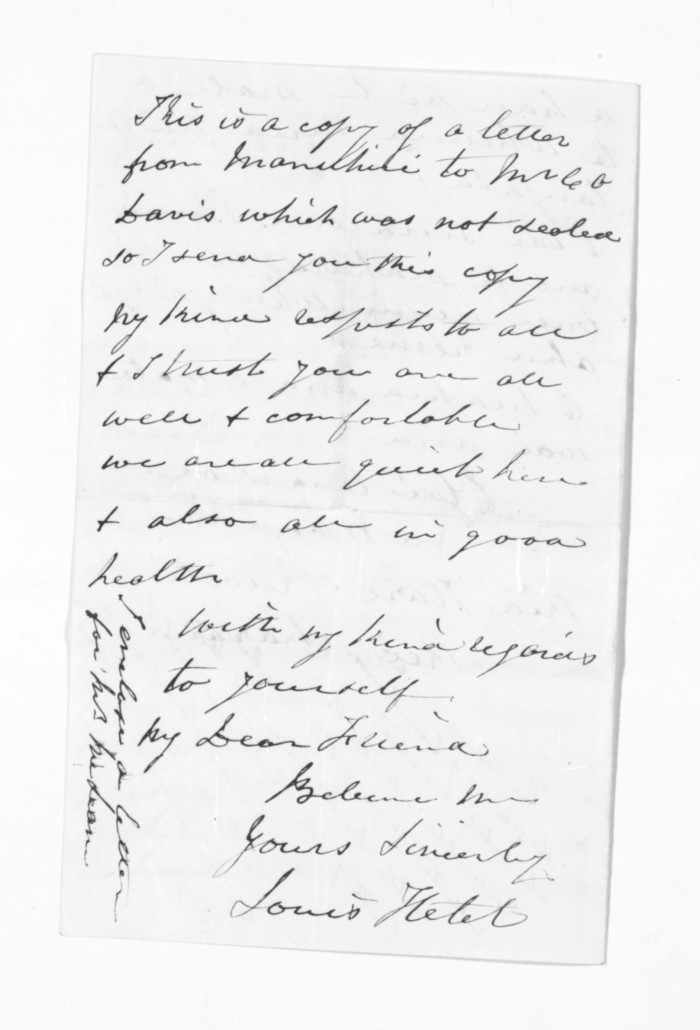 This is a copy of a letter
from Manuhiri to Mr C O
Davis which was not sealed
so I send you this copy
My kind respects to all
& I trust you are all
well & comfortable
we are all quiet here
& also all in good
health
With my kind regards
to yourself
My Dear Friend
Believe Me
Yours Sincerely
Louis Hetet
I enclose a letter
for Mr